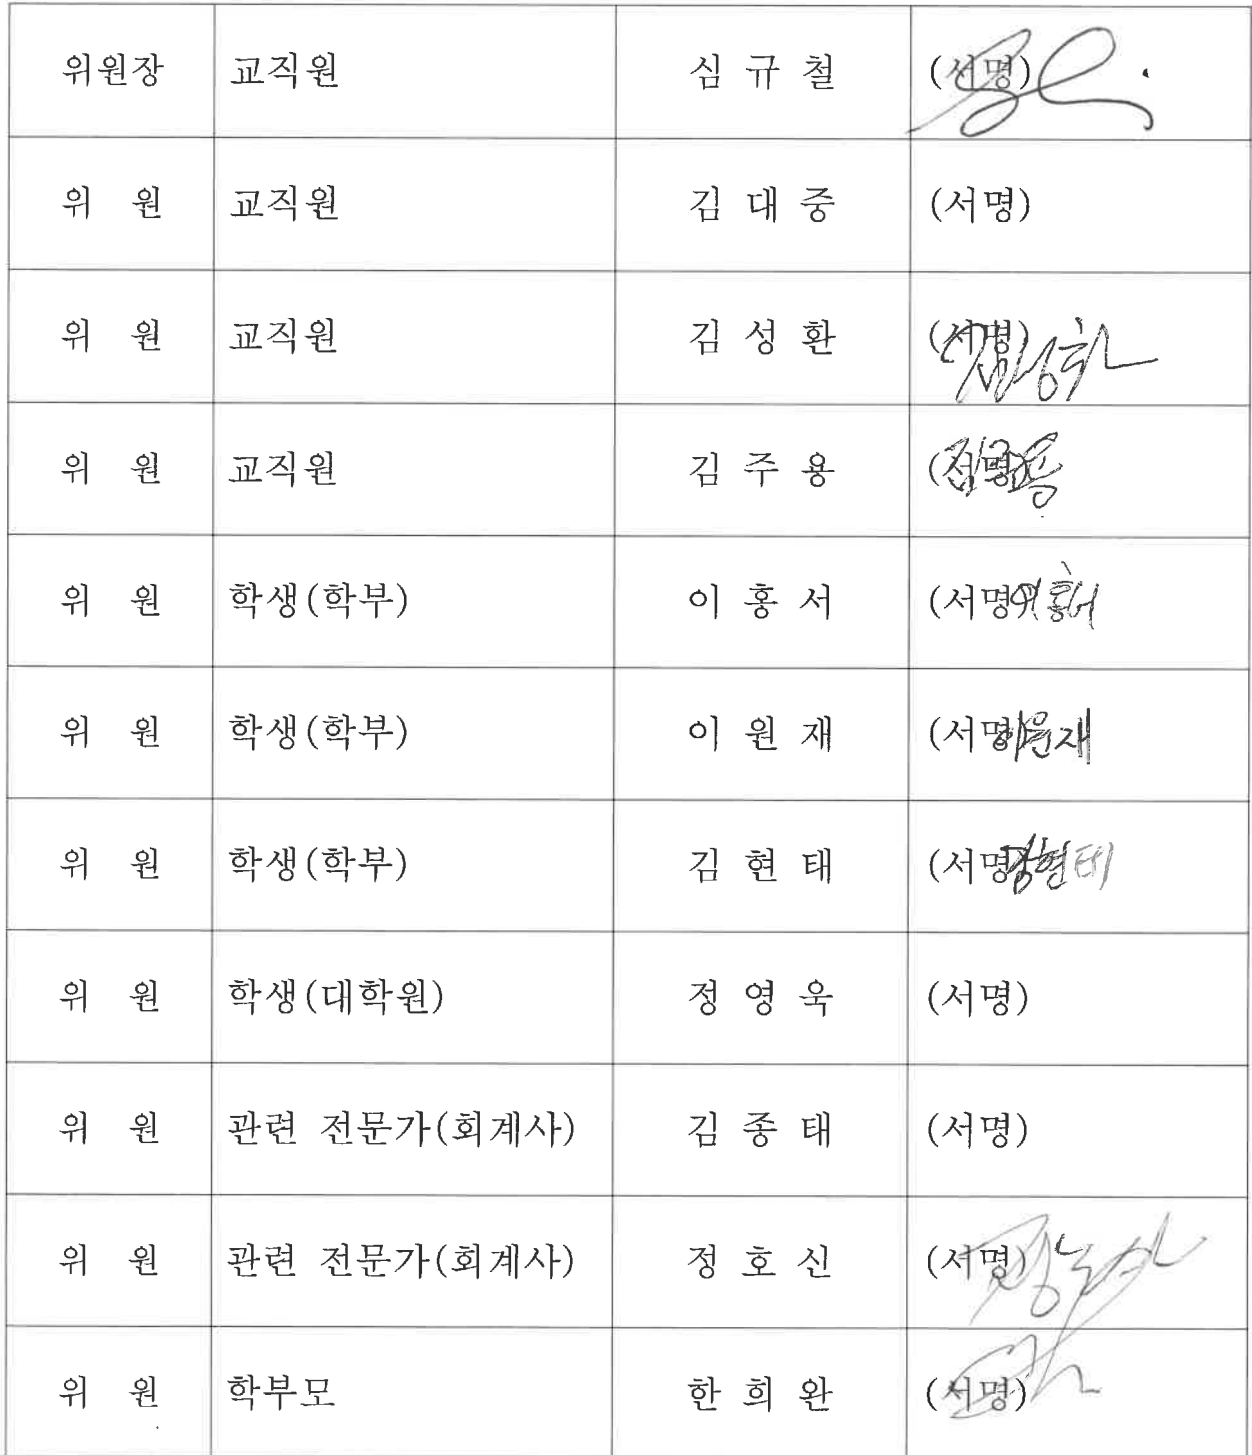 위원장 교직원 심 규 철 (서명)
위 원 교직원 김 대 중 (서명)
위 원 교직원 김 성 환 (서명) 김성환
위 원 교직원 김 주 용 (서명) 김주용
위 원 학생(학부) 이 홍 서 (서명) 이홍서
위 원 학생(학부) 이 원 재 (서명) 이원재
위 원 학생(학부) 김 현 태 (서명) 김현태
위 원 학생(대학원) 정 영 욱 (서명)
위 원 관련 전문가(회계사) 김 종 태 (서명)
위 원 관련 전문가(회계사) 정 호 신 (서명)
위 원 학부모 한 희 완 (서명)